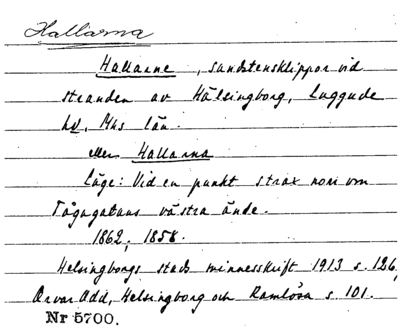 Hallarna
Hallarne, sandstensklippor vid
stranden av Hälsingborg, Luggude
hd, Mhs län.
eller Hallarna
Läge: Vid en punkt strax norr om
Tågagatans västra ände.
1862, 1858.
Helsingborgs stads minnesskrift 1913 s. 126,
Orvar Odd, Helsingborg och Ramlösa s. 101.
Nr 5700.